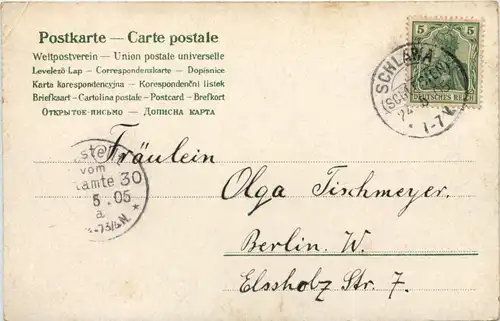 Postkarte — Carte postale
Weltpostverein — Union postale universelle
Levelező-Lap — Correspondenzkarte — Dopisnice
Karta korespondencyjna — Korespondenční listek
Briefkaart — Cartolina postale — Postcard — Brefkort
Открытое-письмо — Дописна карта
5 5
DEUTSCHES REICH
SCHLAWA
(SCHLESIEN)
24
* 1-7 V.
Fräulein
Olga Tischmeyer.
Berlin. W.
Elssholz Str. 7.
vom
amte 30
5 05
a
-73/4N.